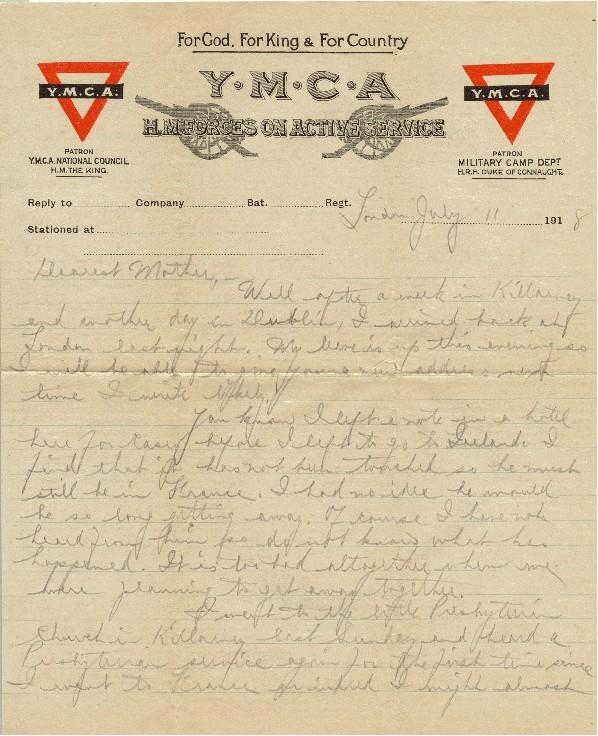 For God, For King & For Country
Y·M·C·A
H.M. FORCES ON ACTIVE SERVICE
Y.M.C.A.
PATRON
Y.M.C.A. NATIONAL COUNCIL
H.M. THE KING.
Y.M.C.A.
PATRON
MILITARY CAMP DEPT
H.R.H. DUKE OF CONNAUGHT.
Reply to Company Bat. Regt. London July 11 1918
Stationed at
Dearest Mother,-
Well after a week in Killarney
and another day in Dublin, I arrived back at
London last night. My leave is up this evening so
I will be able to give you a new address next
time I write likely.
You know I left a note in a hotel
here for Casey before I left to go to Ireland. I
find that it has not been touched so he must
still be in France. I had no idea he would
be so long getting away. Of course I have not
heard from him so do not know what has
happened. It is too bad altogether when we
were planning to get away together.
I went to the little Presbyterian
Church in Killarney last Sunday and heard a
Presbyterian service again for the first time since
I went to France or indeed I might almost